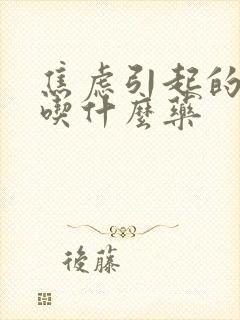 焦虑引起的
喫什麼藥
後藤